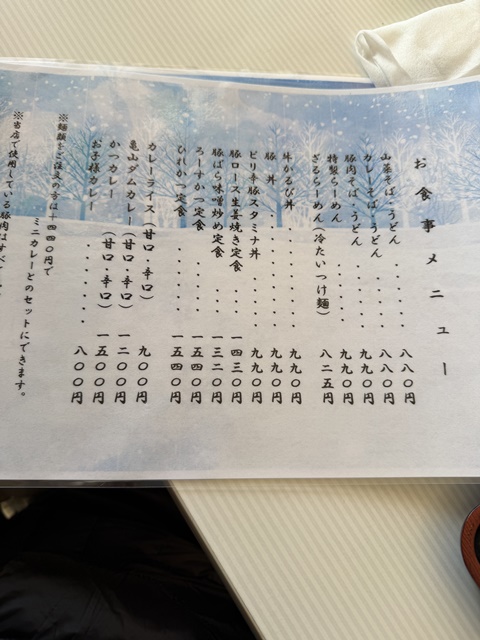 お食事メニュー
山菜そば・うどん・・・・・八八〇円
カレーそば・うどん・・・・八八〇円
豚肉そば・うどん・・・・・九九〇円
特製らーめん・・・・・・九九〇円
ざるらーめん(冷たいつけ麺) 八二五円
牛かるび丼・・・・・・・九九〇円
豚丼・・・・・・・・・九九〇円
ピリ辛豚スタミナ丼・・・・九九〇円
豚ロース生姜焼き定食・・・一四三〇円
豚ばら味噌炒め定食・・・一三二〇円
ろーすかつ定食・・・・・一五四〇円
ひれかつ定食・・・・・・一五四〇円
カレーライス(甘口・辛口) 九〇〇円
亀山ダムカレー(甘口・辛口) 一二〇〇円
かつカレー(甘口・辛口) 一五〇〇円
お子様カレー・・・・・・八〇〇円
※麺類をご注文の方は+四四〇円で
ミニカレーとのセットにできます。
※当店で使用している豚肉はすべて